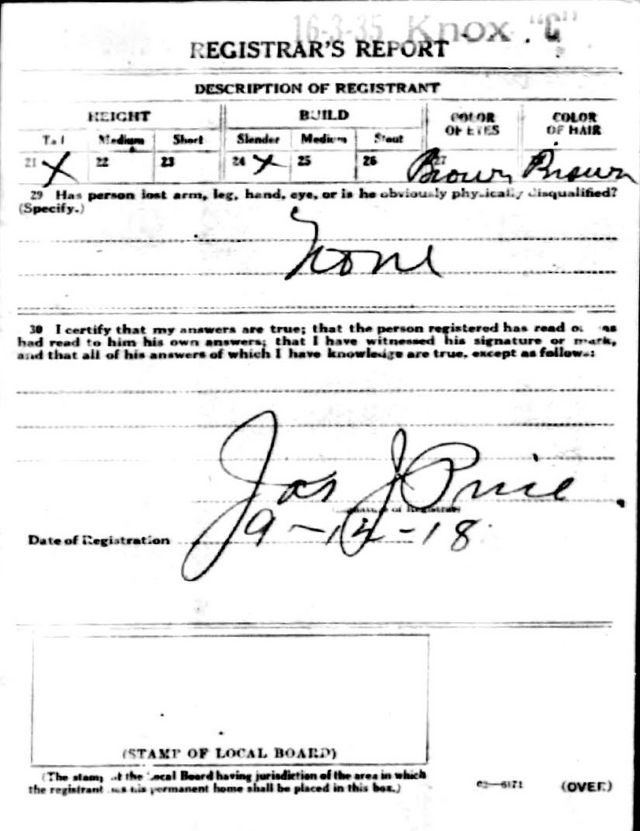 16-3-35 Knox "C"
REGISTRAR'S REPORT
DESCRIPTION OF REGISTRANT
HEIGHT BUILD COLOR OF EYES COLOR OF HAIR
Tall Medium Short Slender Medium Stout
21 X 22 23 24 X 25 26 27 Brown Brown
29 Has person lost arm, leg, hand, eye, or is he obviously physically disqualified?
(Specify.)
None
30 I certify that my answers are true; that the person registered has read or has
had read to him his own answers; that I have witnessed his signature or mark,
and that all of his answers of which I have knowledge are true, except as follows:
Jas J Price
of Registrar
Date of Registration 9-12-18
(STAMP OF LOCAL BOARD)
(The stamp of the Local Board having jurisdiction of the area in which
the registrant has his permanent home shall be placed in this box.)
(OVER)